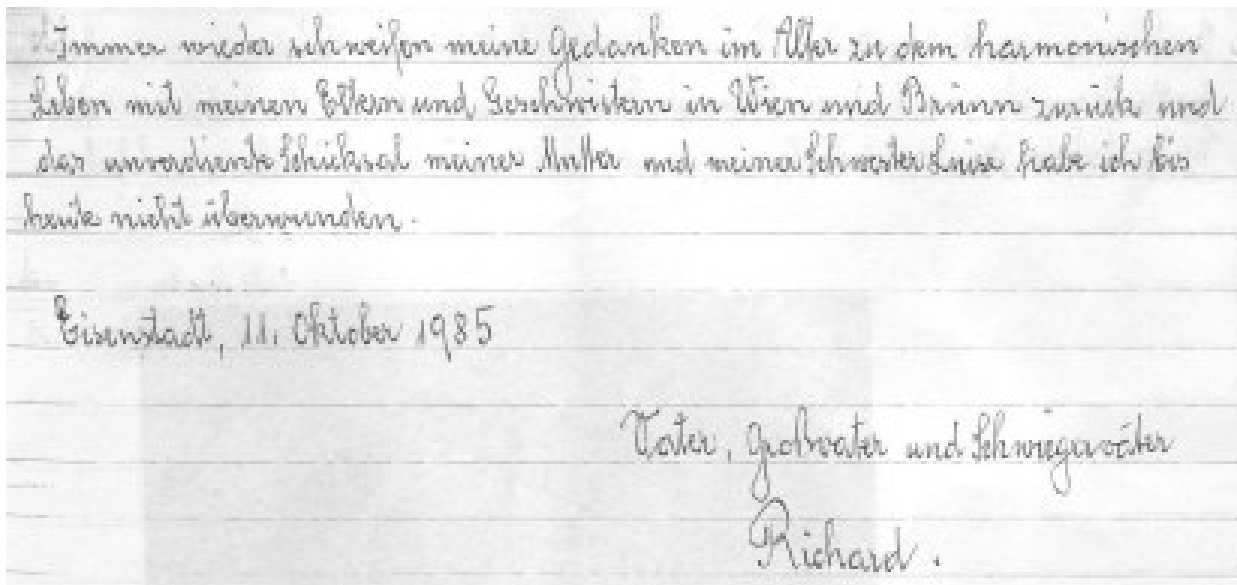 Immer wieder schweifen meine Gedanken im Alter zu dem harmonischen
Leben mit meinen Eltern und Geschwistern in Wien und Brünn zurück und
das unverdiente Schicksal meiner Mutter und meiner Schwester Luise habe ich bis
heute nicht überwunden.
Eisenstadt, 11. Oktober 1985
Vater, Großvater und Schwiegervater
Richard.